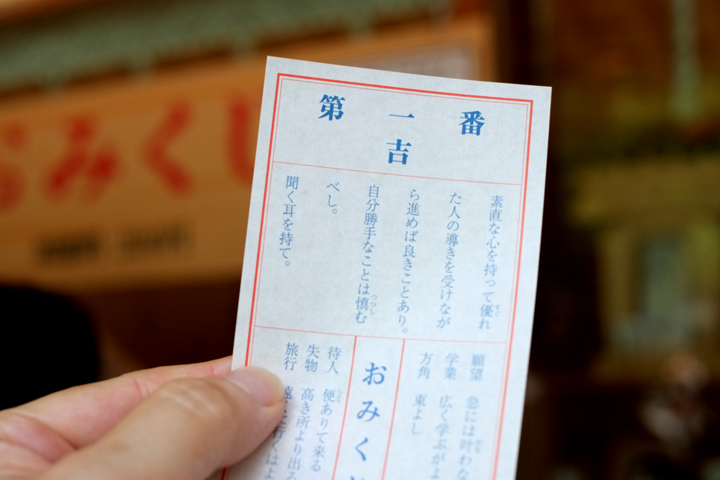 おみくじ
第一番
吉
素直な心を持って優れ
た人の導きを受けなが
ら進めば良きことあり。
自分勝手なことは慎む
べし。
聞く耳を持て。
願望 急には叶わな
学業 広く学ぶがよ
方角 東よし
おみく
待人 便ありて来る
失物 高き所より出
旅行